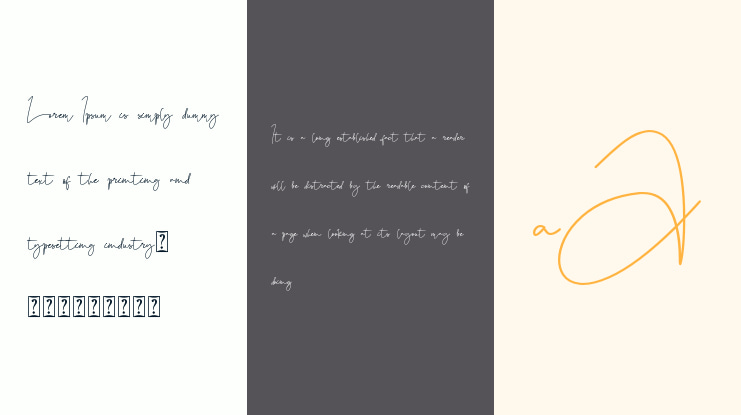 Lorem Ipsum is simply dummy
text of the printing and
typesetting industry
It is a long established fact that a reader
will be distracted by the readable content of
a page when looking at its layout may be
doing
a
A